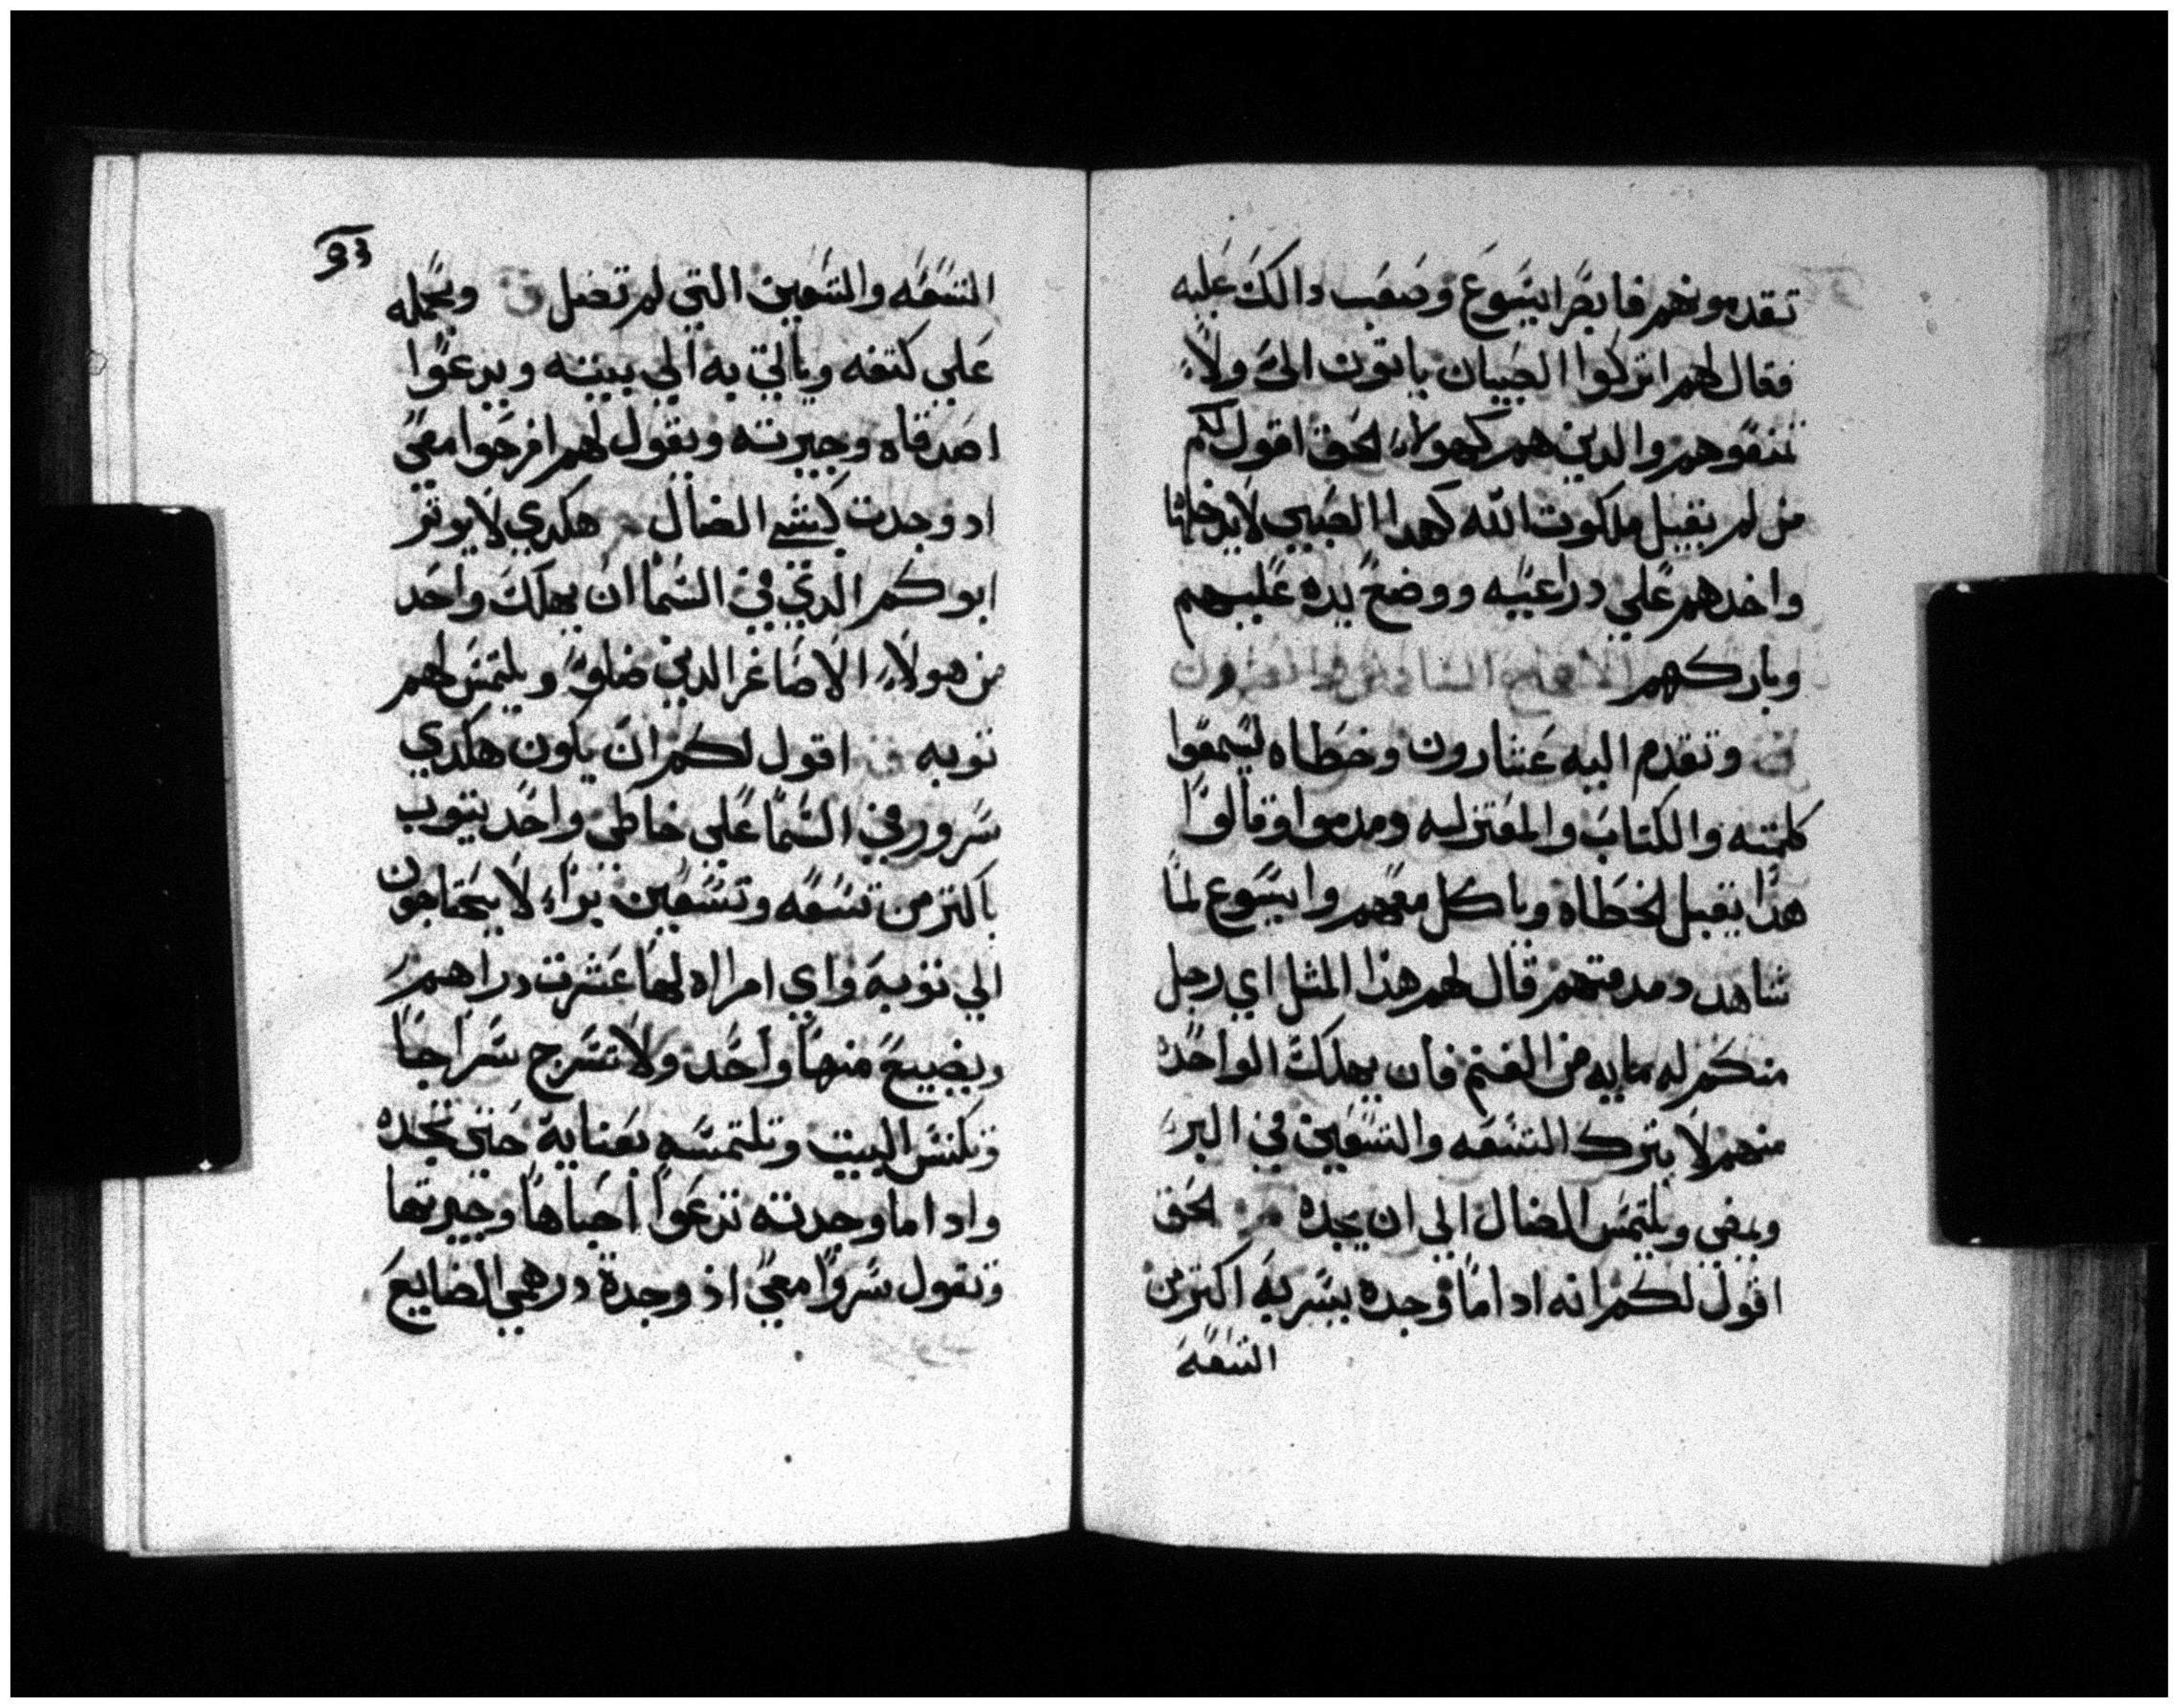 تقدمونهم فابصر ايسوع وصعب دالك عليه
فقال لهم اتركوا الصبيان ياتون الي ولا
تمنعوهم والدين هم كهولاء الحق اقول لكم
من لم يقبل ملكوت الله كهدا الصبي لا يدخلها
واخدهم علي دراعيه ووضع يده عليهم
وباركهم الاصحاح السادس والعشرون
وتقدم اليه عشارون وخطاه ليسمعوا
كلمته والكتاب والمعتزله ومدموا وقالوا
هذا يقبل الخطاه وياكل معهم وايسوع لما
شاهد دمدمتهم قال لهم هذا المثل اي رجل
منكم له مايه من الغنم فان يهلك الواحده
منهم لا يترك التسعه والتسعين في البر
ويمضي ويلتمس الضال الي ان يجده الحق
اقول لكم انه ادا ما وجده يسر به اكتر من
التسعة
التسعه والتسعين التي لم تضل ويحمله
علي كتفه وياتي به الي بيته ويدعوا
اصدقاه وجيرته ويقول لهم افرحوا معي
اد وجدت كبشي الضال هكدي لا يوتر
ابوكم الدي في السما ان يهلك واحد
من هولاء الاصاغر الدين ضلو ويلتمس لهم
توبه اقول لكم ان يكون هكدي
سرور في السما علي خاطي واحد يتوب
باكتر من تسعه وتسعين برا لا يحتاجون
الي توبة واي امراه لها عشرت دراهم
ويضيع منها واحد ولا تسرج سراجا
وتكنس البيت وتلتمسه بعناية حتي تجده
وادا ما وجدته تدعوا احباها وجيرتها
وتقول سروا معي اذ وجدة درهمي الضايع